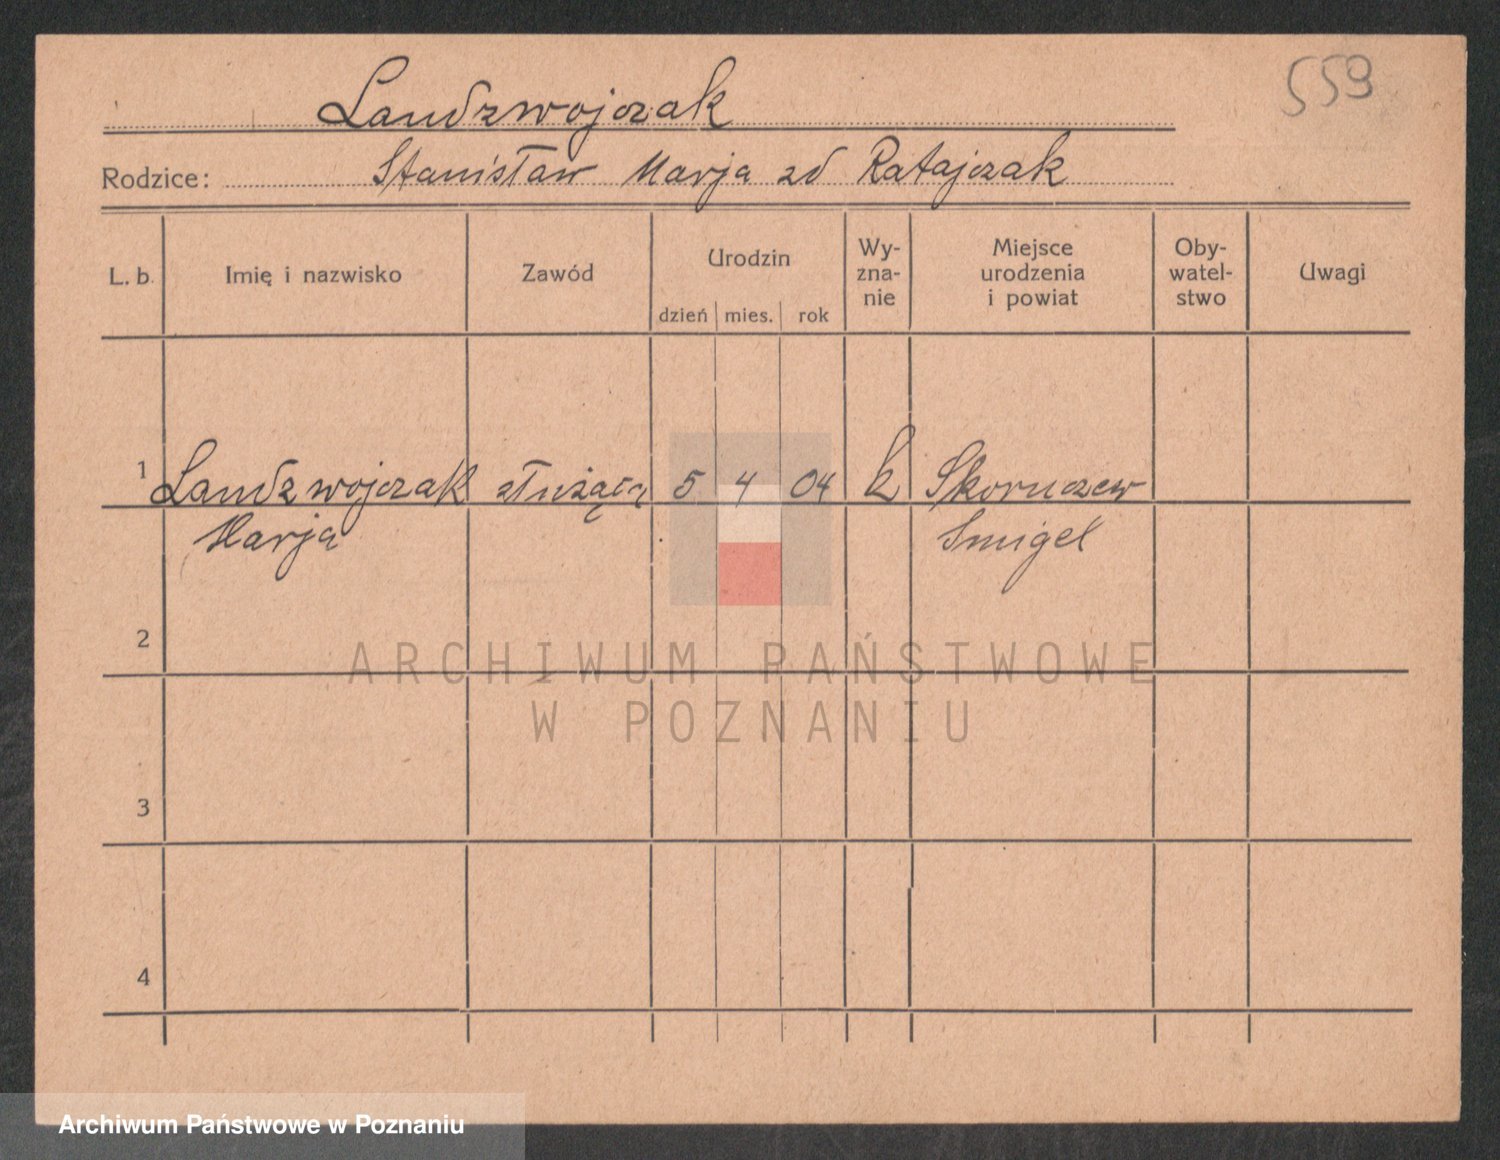 559
Landzwojczak
Rodzice: Stanisław Marja zd Ratajczak
L. b. Imię i nazwisko Zawód Urodzin dzień mies. rok Wy-zna-nie Miejsce urodzenia i powiat Oby-watel-stwo Uwagi
1 Landzwojczak służąca 5 4 04 k Skoruczew
Marja Smigel
2
3
4
ARCHIWUM PAŃSTWOWE
W POZNANIU
Archiwum Państwowe w Poznaniu